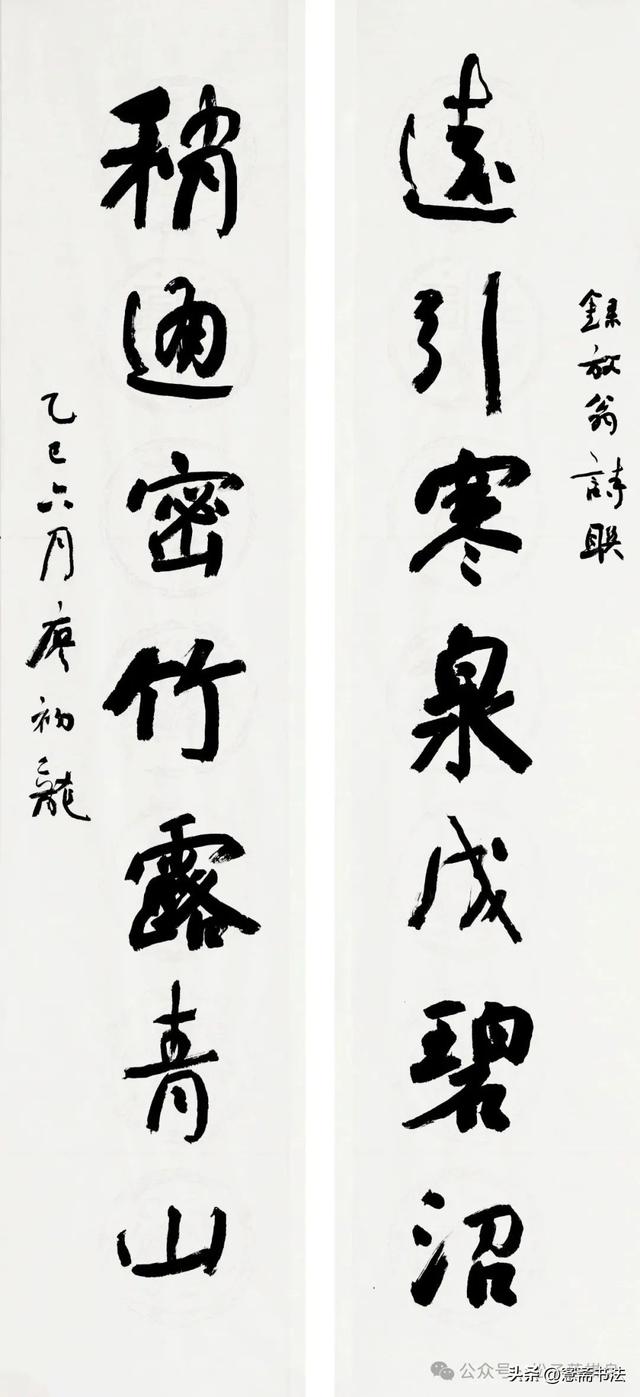 錄放翁詩联
遠引寒泉成碧沼
稍通密竹露青山
乙巳六月廖初龍
公众号
头条 @斋书法